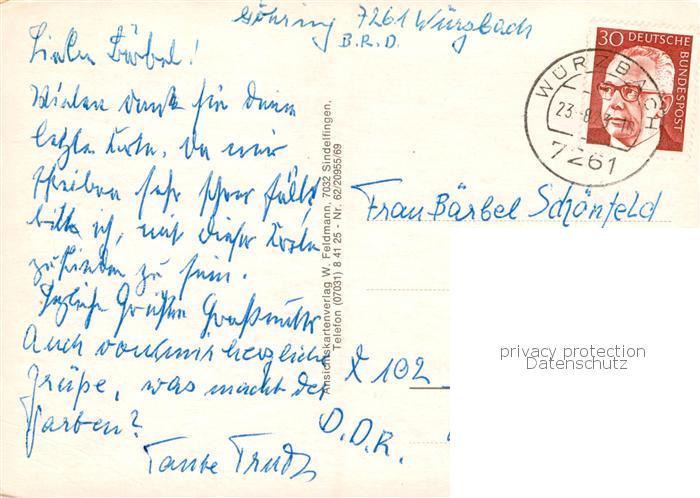 Göhring 7261 Würzbach
B.R.D.
Liebe Bärbel!
Vielen Dank für Deine
letzte Karte, da mir
schreiben sehr schwer fällt,
bitte ich, mit dieser Karte
zufrieden zu sein.
Herzliche Grüße Großmutter
Auch von mir herzliche
Grüße, was macht der
Garten?
Tante Trude
Ansichtskartenverlag W. Feldmann, 7032 Sindelfingen,
Telefon (07031) 8 41 25 - Nr. 62/20955/69
30 DEUTSCHE
BUNDESPOST
WÜRZBACH
23.-8.
7261
Frau Bärbel Schönfeld
X 102
D.D.R.
privacy protection
Datenschutz